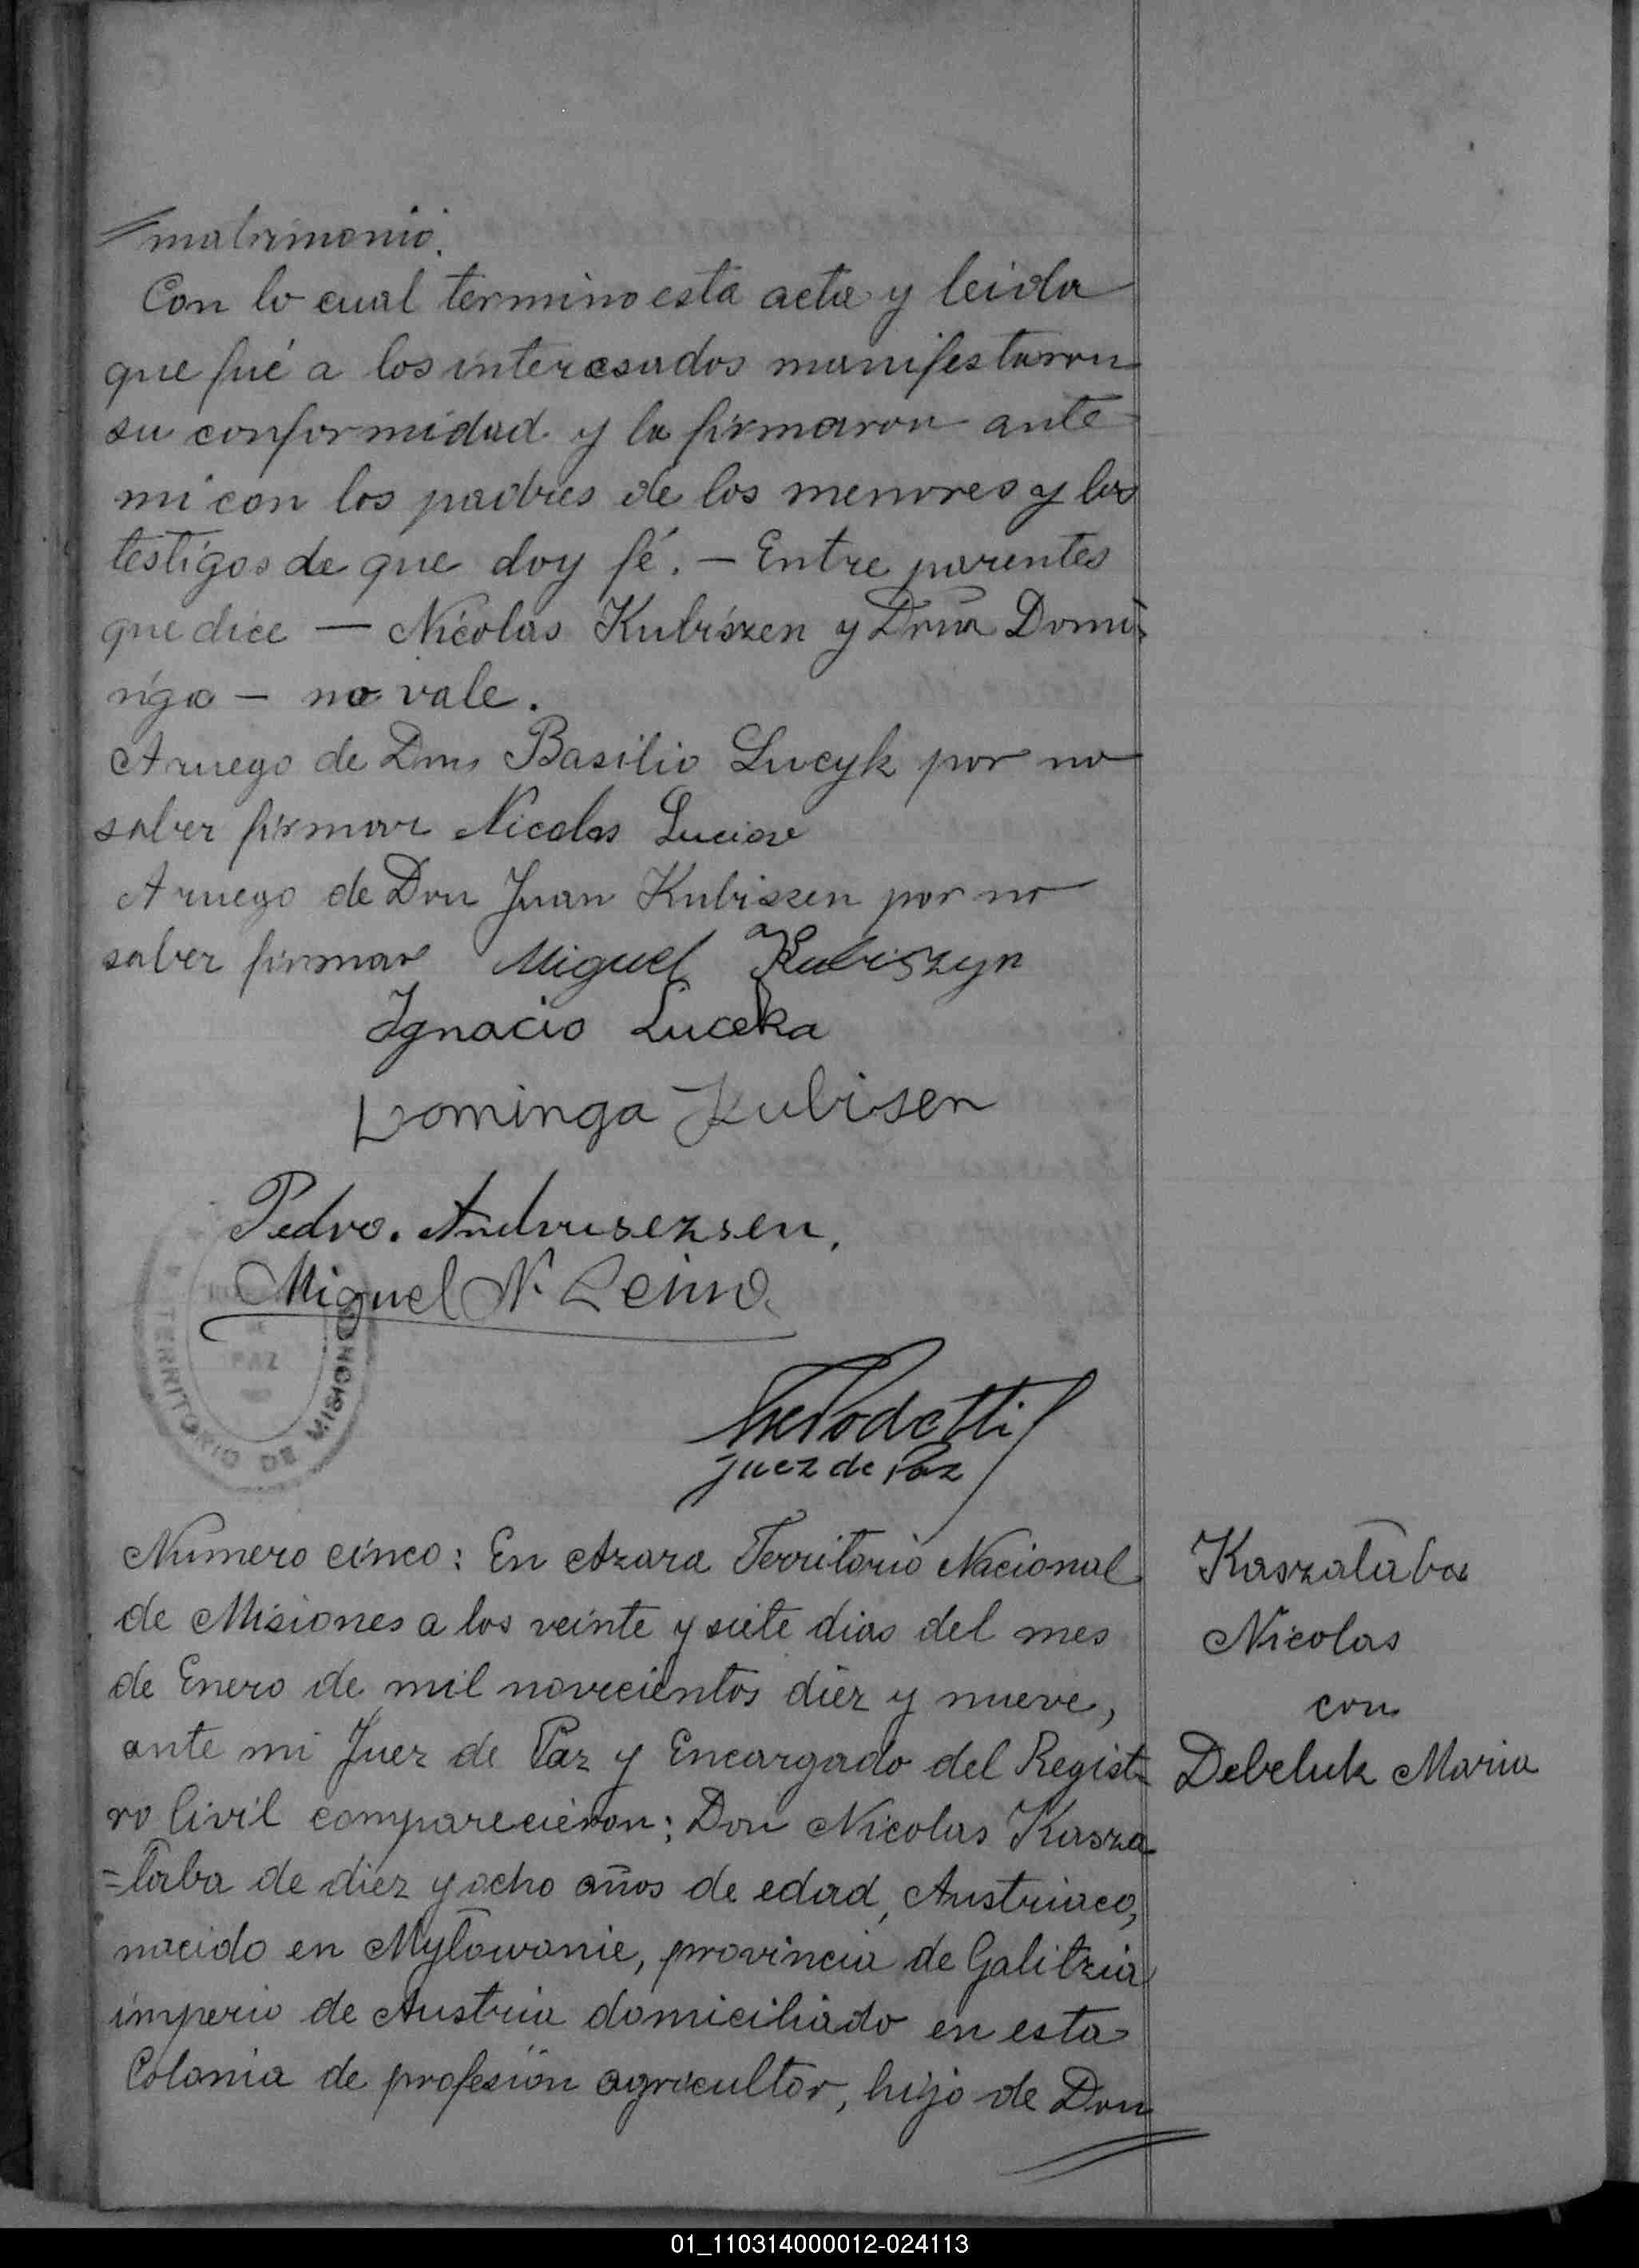 matrimonio.
Con lo cual termino esta acta y leida
que fué a los interesados manifestaron
su conformidad y la firmaron ante
mi con los padres de los menores y los
testigos de que doy fé. — Entre parentes
que dice — Nicolas Kubiszen y Doña Domi
niga — no vale.
A ruego de Don Basilio Lucyk por no
saber firmar Nicolas Luciow
A ruego de Don Juan Kubiszen por no
saber firmar Miguel Kubiszyn
Ignacio Luceka
Dominga Kubisen
Pedro. Andrusezsen.
Miguel N.
PAZ
TERRITORIO DE MISIONES
Juez de Paz
Numero cinco: En Azara Territorio Nacional
de Misiones a los veinte y siete dias del mes
de Enero de mil novecientos diez y nueve,
ante mi Juez de Paz y Encargado del Regist
ro Civil comparecieron: Don Nicolas Kasza
=laba de diez y ocho años de edad, Austriaco,
nacido en Mylowanie, provincia de Galitzia
imperio de Austria domiciliado en esta
Colonia de profesión agricultor, hijo de Don
Kaszalaba
Nicolas
con
Debeluk Maria
01_110314000012-024113